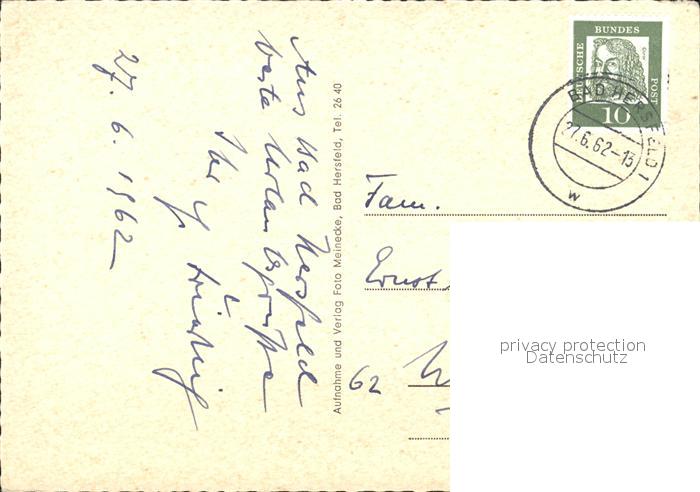 27. 6. 1962
Aus Bad Hersfeld
beste Urlaubsgrüsse
Ihr
Aufnahme und Verlag Foto Meinecke, Bad Hersfeld, Tel. 26 40
DEUTSCHE BUNDES POST
10
BAD HERSFELD 1
27.6.62-13
w
Fam.
Ernst
62
privacy protection
Datenschutz